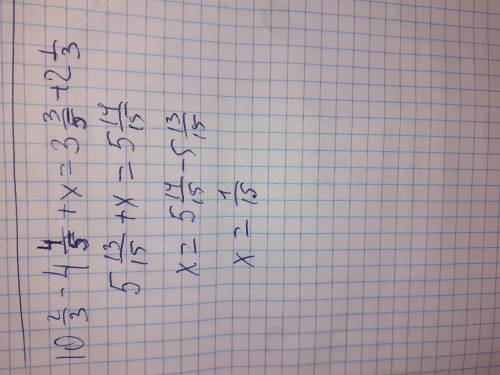 10 2/3 - 4 4/5 + x = 3 3/5 + 2 1/3
5 13/15 + x = 5 14/15
x = 5 14/15 - 5 13/15
x = 1/15